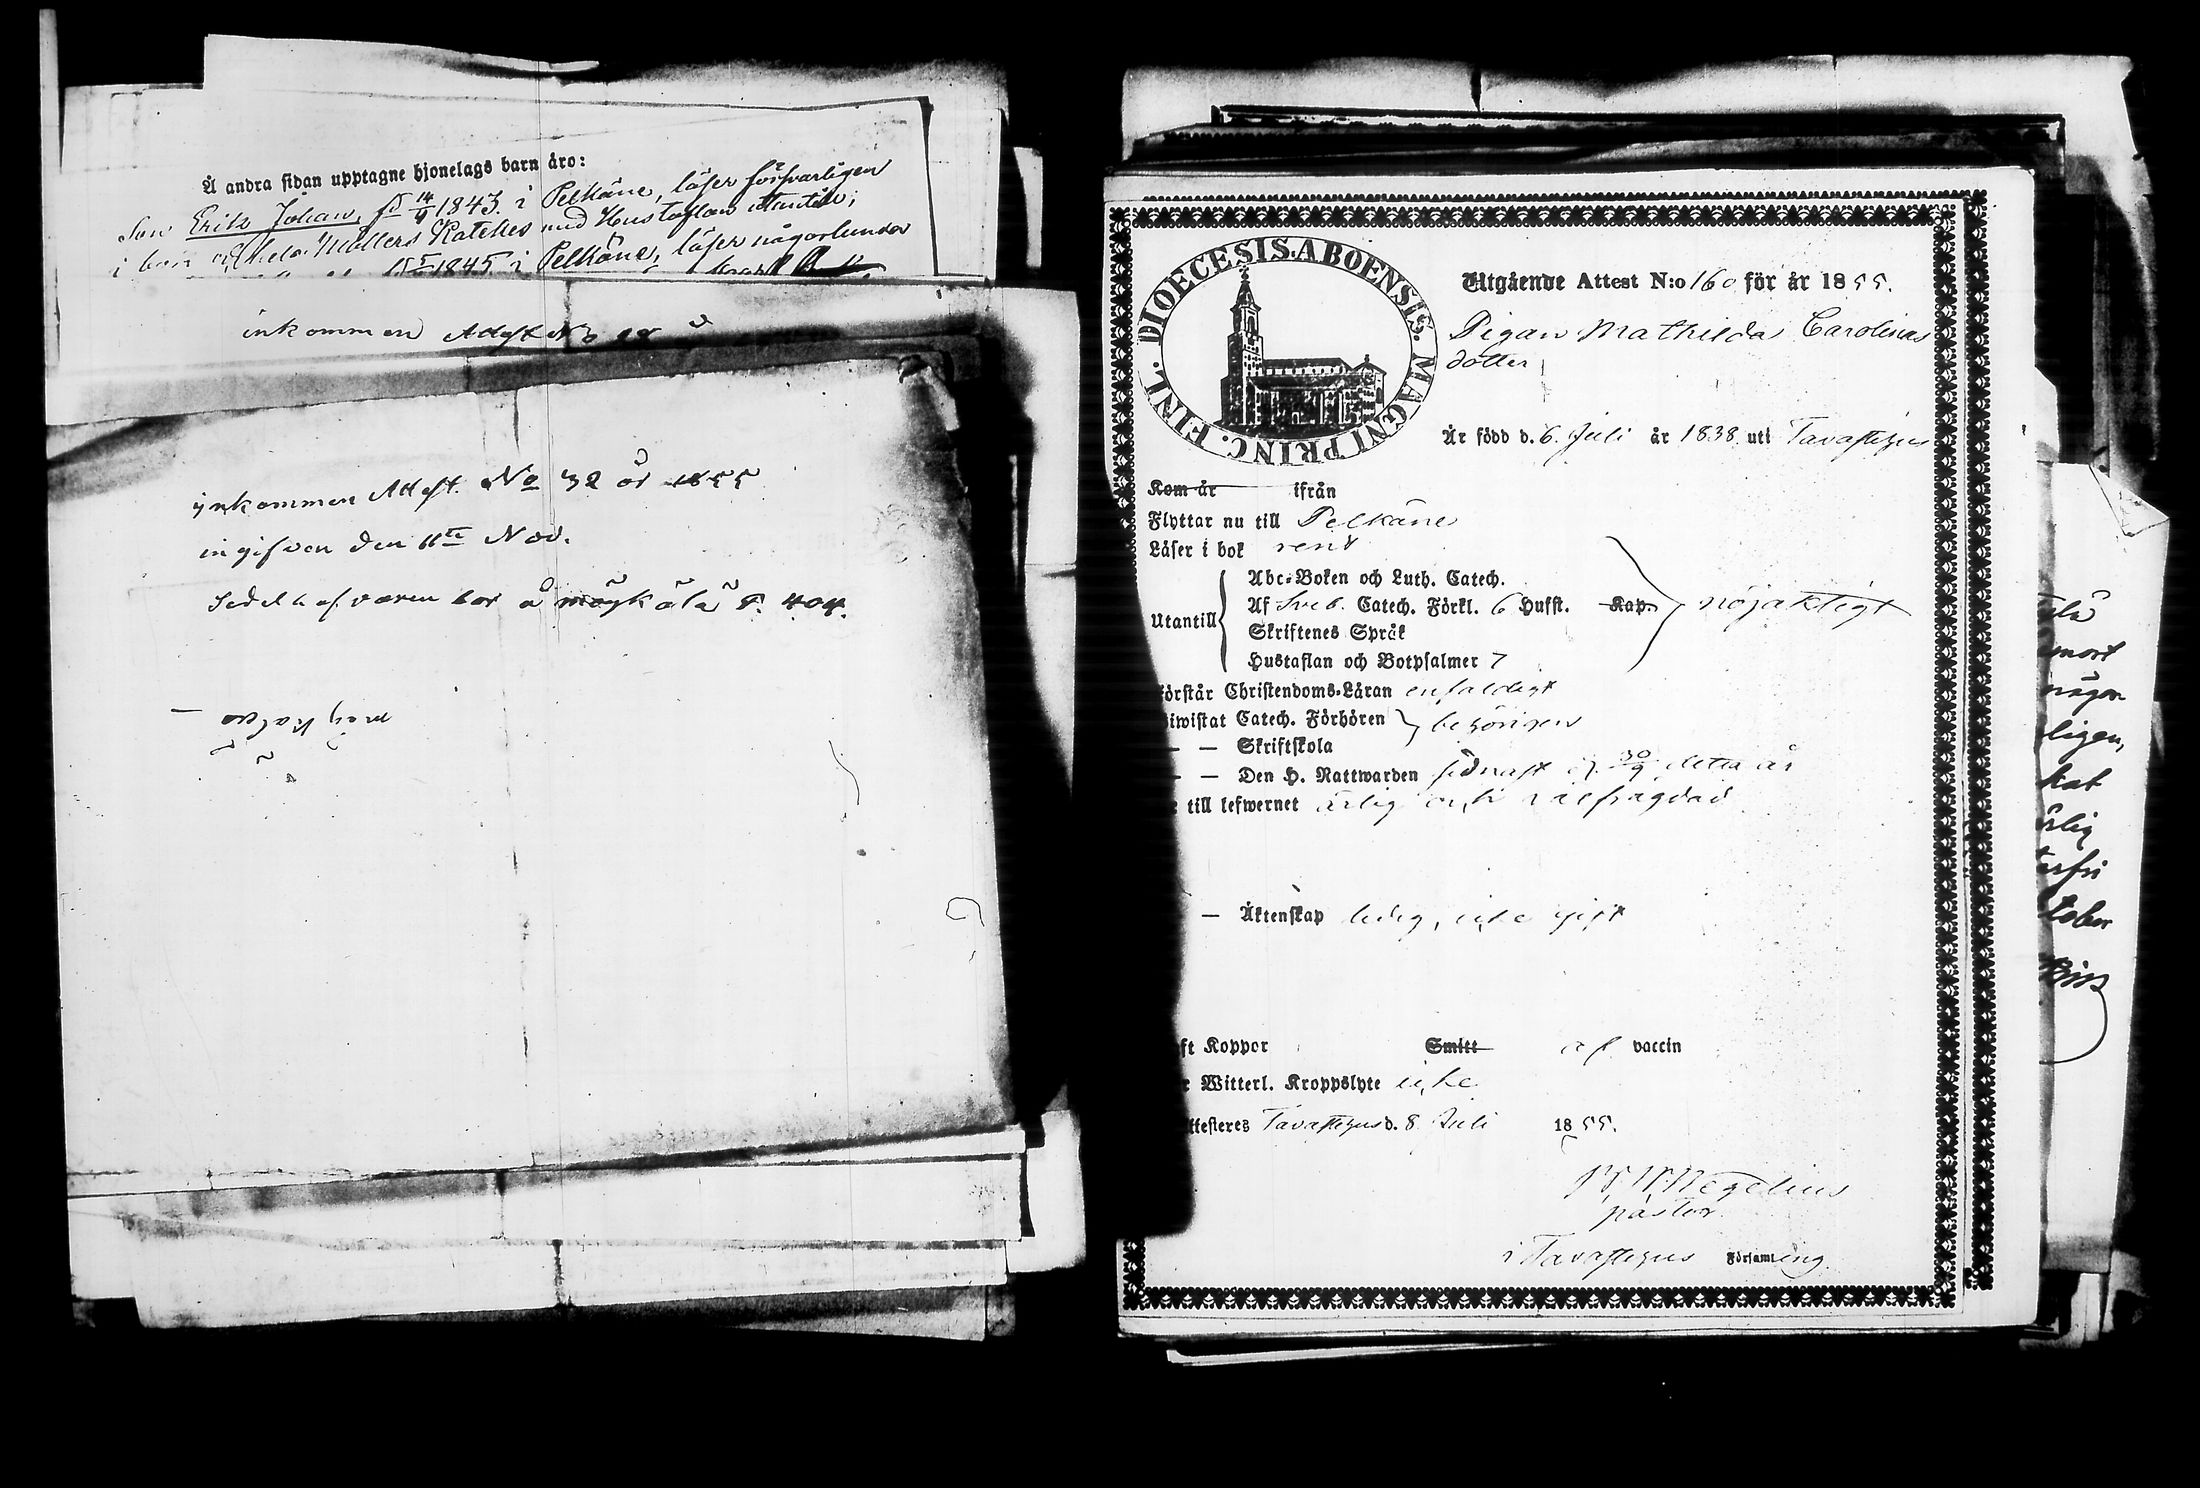 Å andra sidan upptagne hjonelags barn äro:
Son Erik Johan, fd 14/9 1843. i Pelkäne, läser försvarligen
i bok Möllers Katches med Hustaflan utantill;
1845. i Pelkäne, läser någorlunda
inkommen Attest No
ynkommen Attest. No 32 år 1855
ingifven den 11te Nov.
å P. 404.
DIOECESIS. ABOENSIS. MAGNI PRINC. FINL.
Utgående Attest N:o 160 för år 1855.
Pigan Mathilda Carolinas
dotter
Är född d. 6. Juli år 1838 uti Tavastehus
Kom år ifrån
Flyttar nu till Pelkäne
Läser i bok rent
Abc-Boken och Luth. Catech.
Utantill Af Sveb. Catech. Förkl. 6 Hufst. Kap. nöjaktigt
Skriftenes Språk
Hustaflan och Botpsalmer 7
örstår Christendoms-Läran enfaldigt
iwistat Catech. Förhören behörigen
— — Skriftskola
— — Den H. Nattwarden sednast d. 30/9 detta år
till lefwernet ärlig och välfrägdad
— Äktenskap ledig, icke gift
ft Koppor Smitt af vaccin
r Witterl. Kroppslyte icke
ttesteres Tavastehus d. 8 Juli 1855.
Wegelius
pastor
i Tavastehus Församling.
mort
någor
ligen,
kat
ärlig
tober